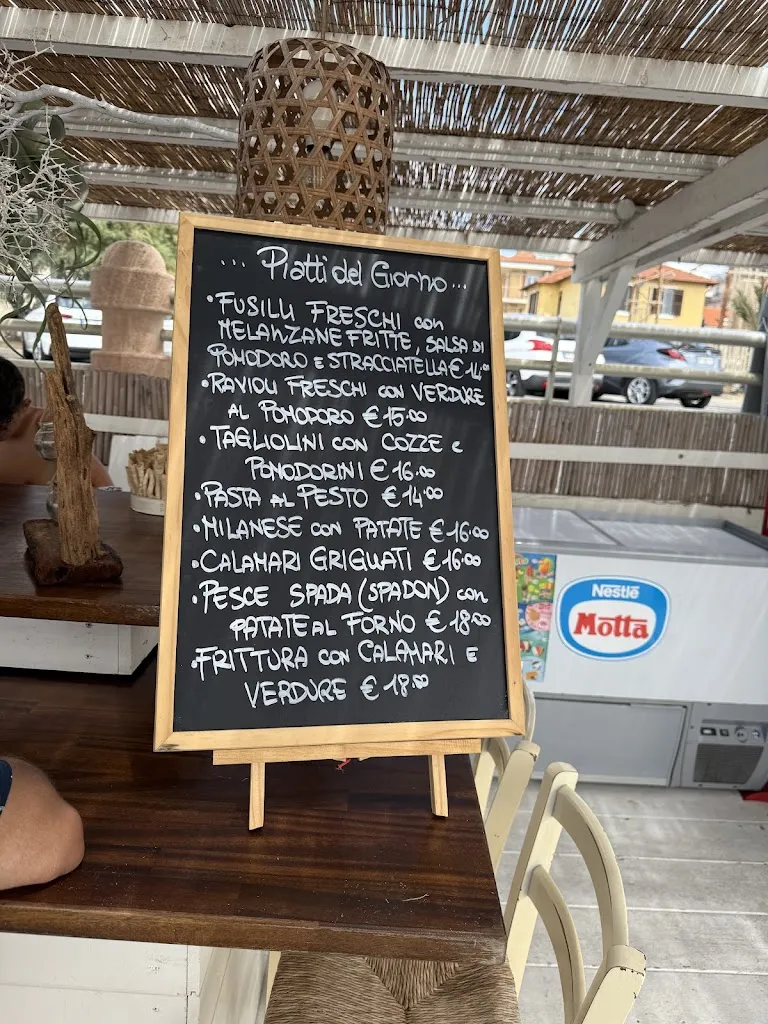 ... Piatti del Giorno ...
• FUSILLI FRESCHI con
MELANZANE FRITTE, SALSA DI
POMODORO E STRACCIATELLA € 14.00
• RAVIOLI FRESCHI con VERDURE
AL POMODORO € 15.00
• TAGLIOLINI con COZZE E
POMODORINI € 16.00
• PASTA AL PESTO € 14.00
• MILANESE con PATATE € 16.00
• CALAMARI GRIGLIATI € 16.00
• PESCE SPADA (SPADON) con
PATATE AL FORNO € 18.00
• FRITTURA con CALAMARI E
VERDURE € 18.00
Nestlé
Motta